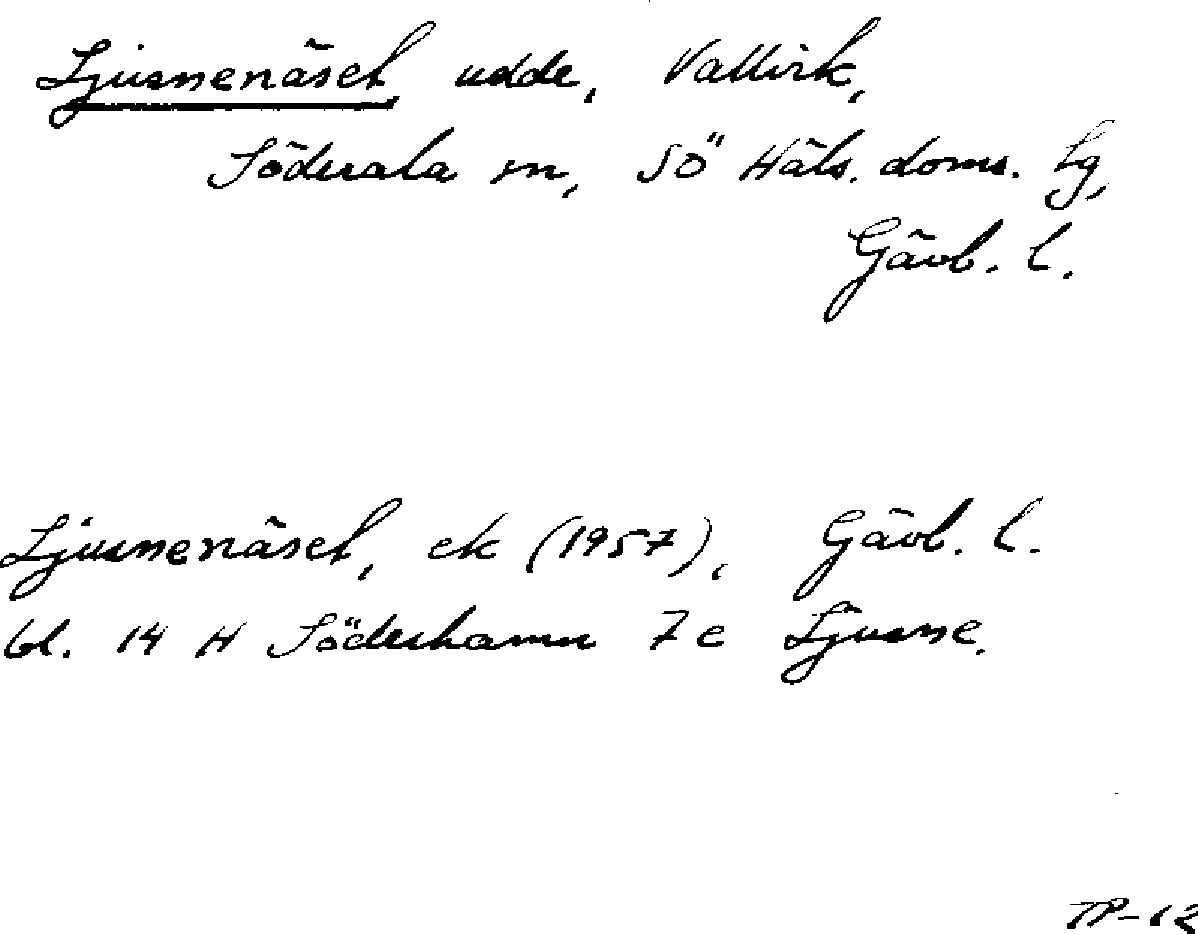 Ljusnenäset udde, Vallvik,
Söderala sn, SÖ Häls. doms. Lg,
Gävb. l.
Ljusnenäset, ek (1957), Gävb. l.
bl. 14 H Söderhamn 7 e Ljusne.
TP-12